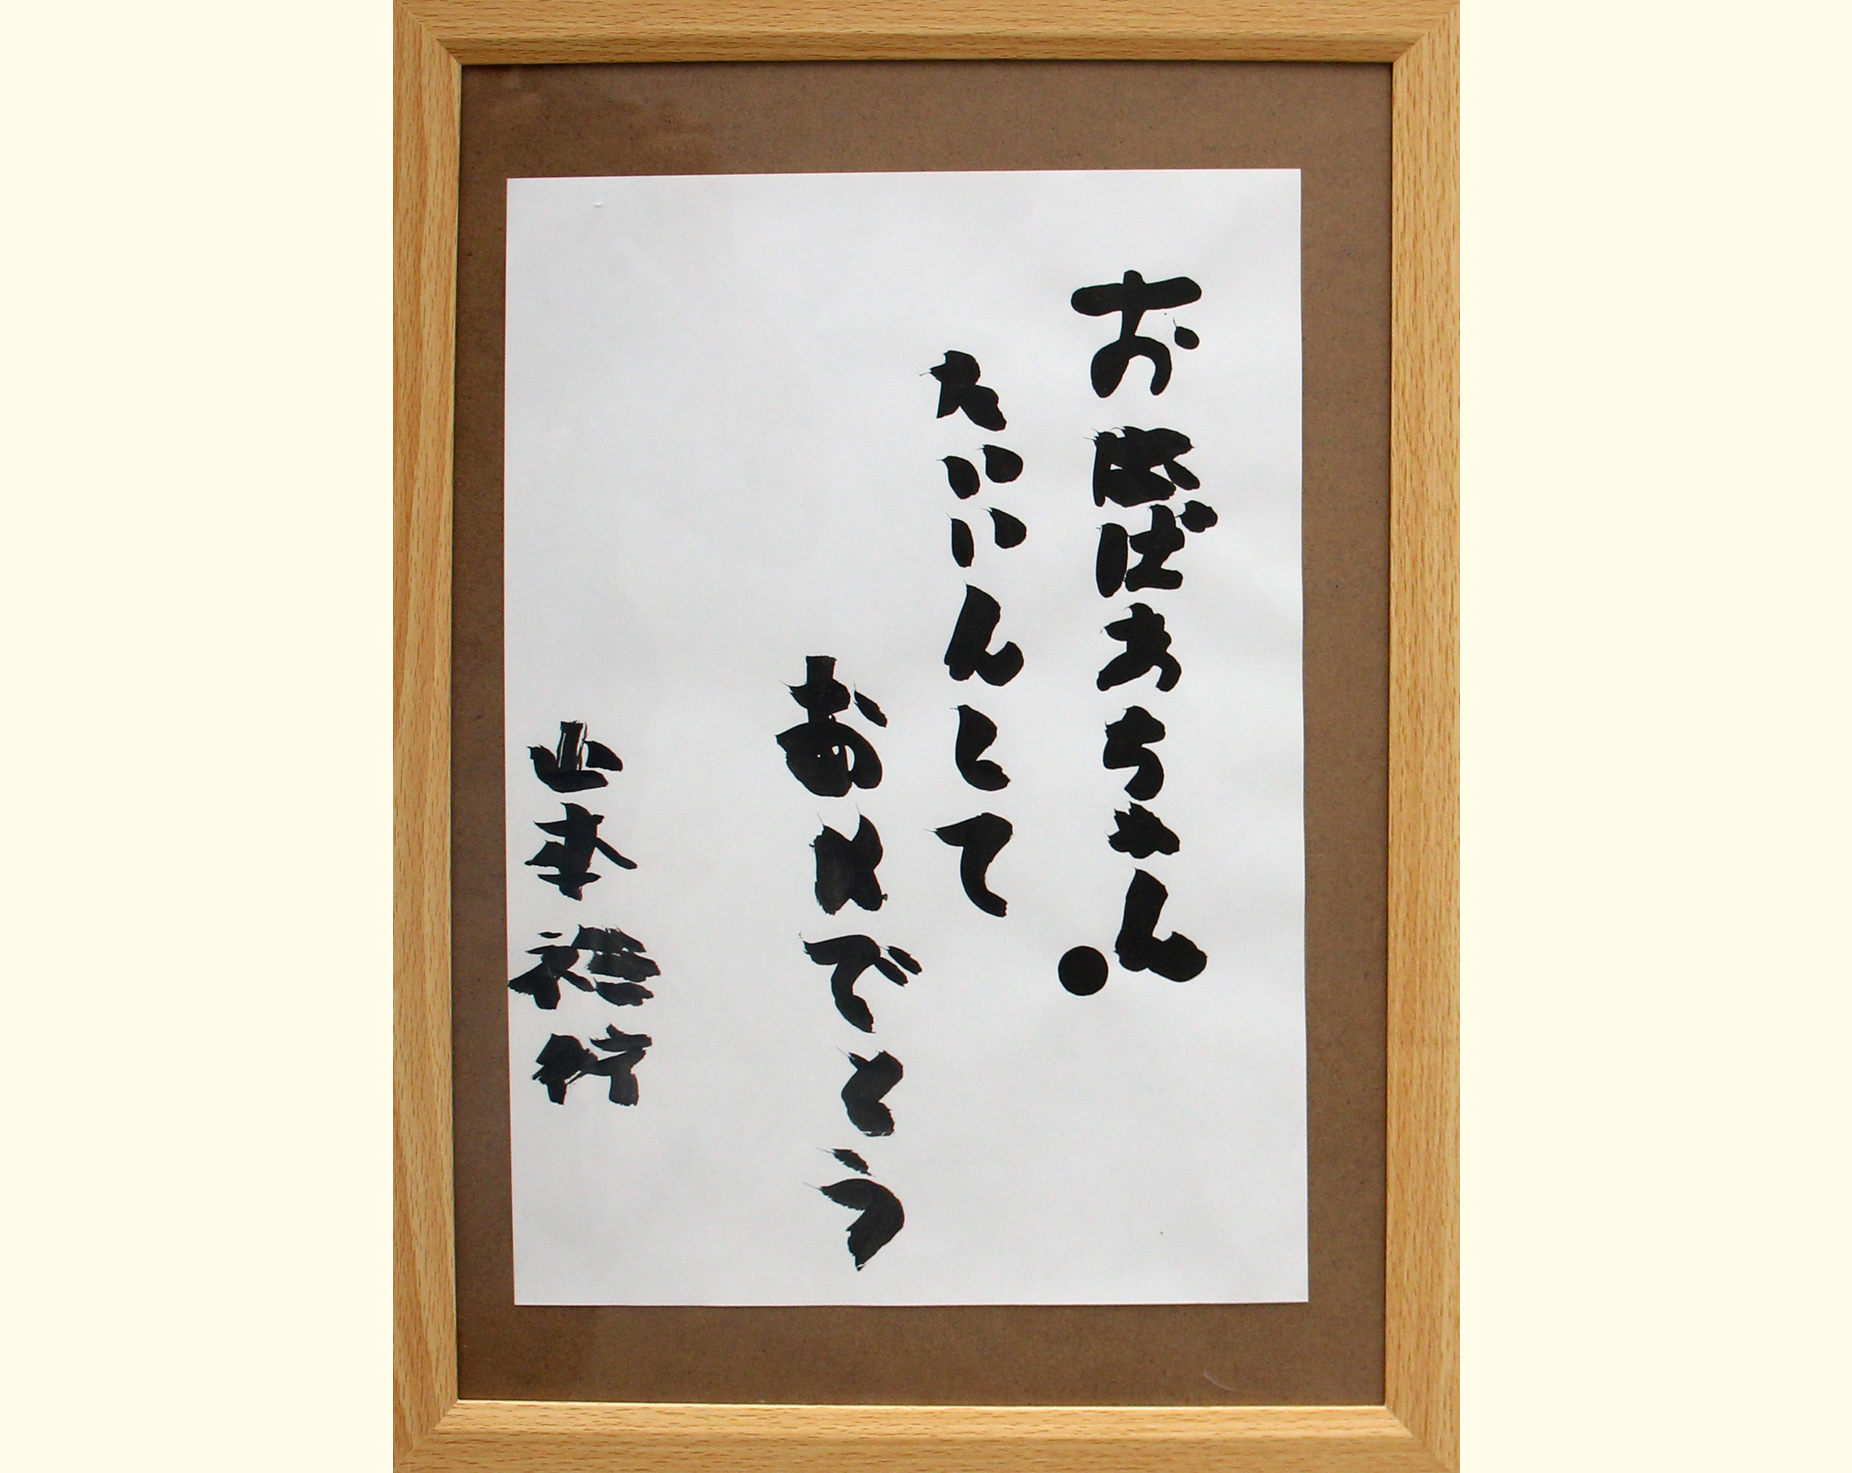 おばあちゃん
たいいんして
おめでとう
山本